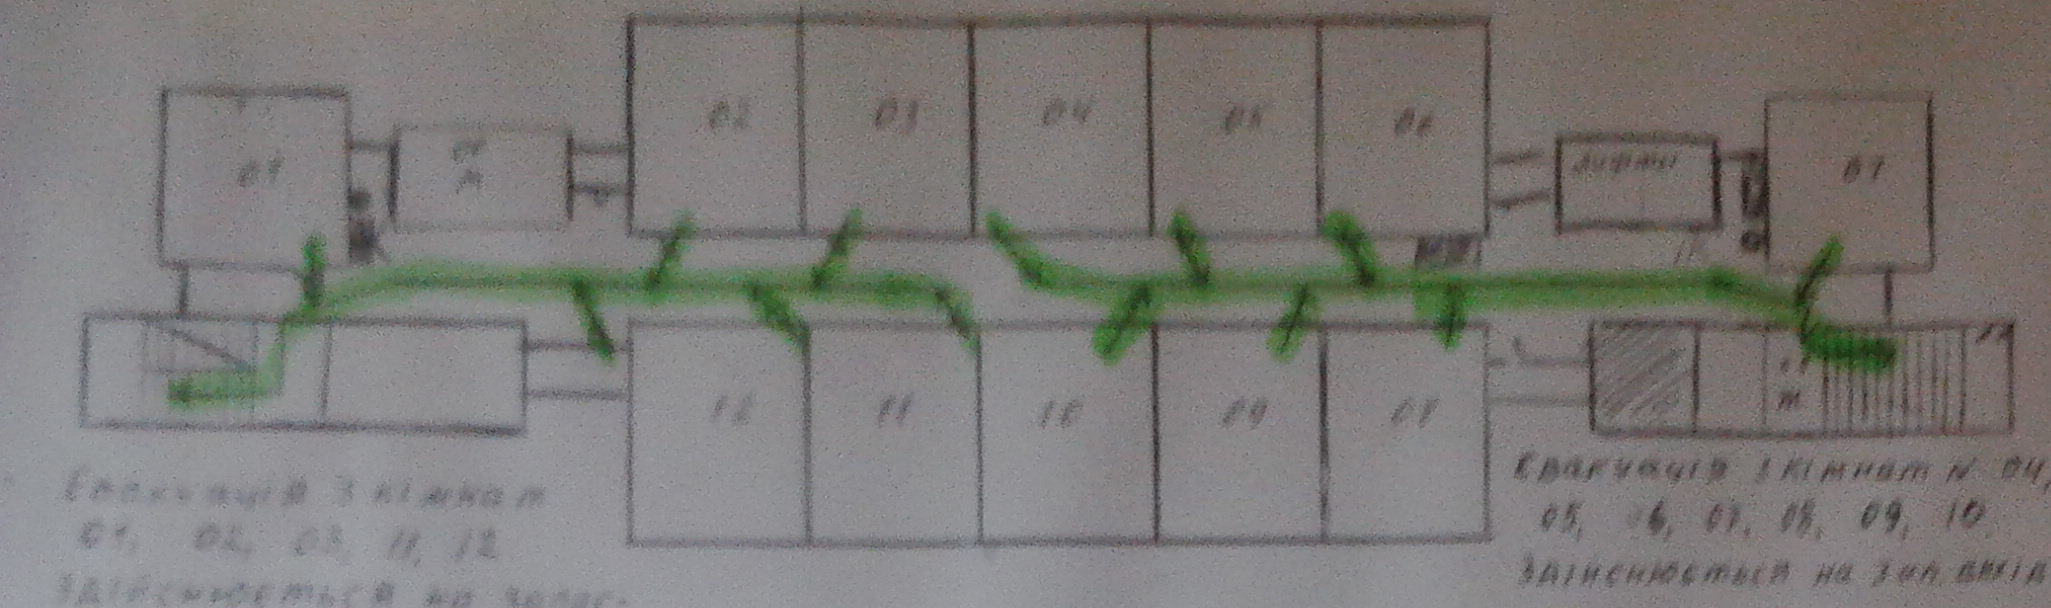 02 03 04 05 06
01
ліфти
07
12 11 10 09 08
Евакуація з кімнат
01, 02, 03, 11, 12
здійснюється на
Евакуація з кімнат N 04,
05, 06, 07, 08, 09, 10
здійснюється на зап. вихід